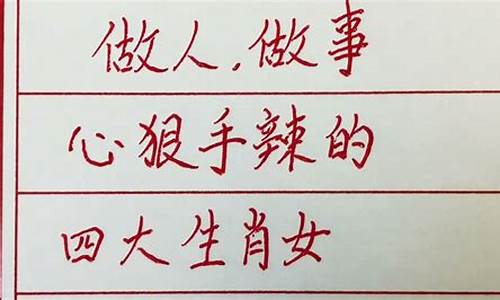 做人，做事
心狠手辣的
四大生肖女